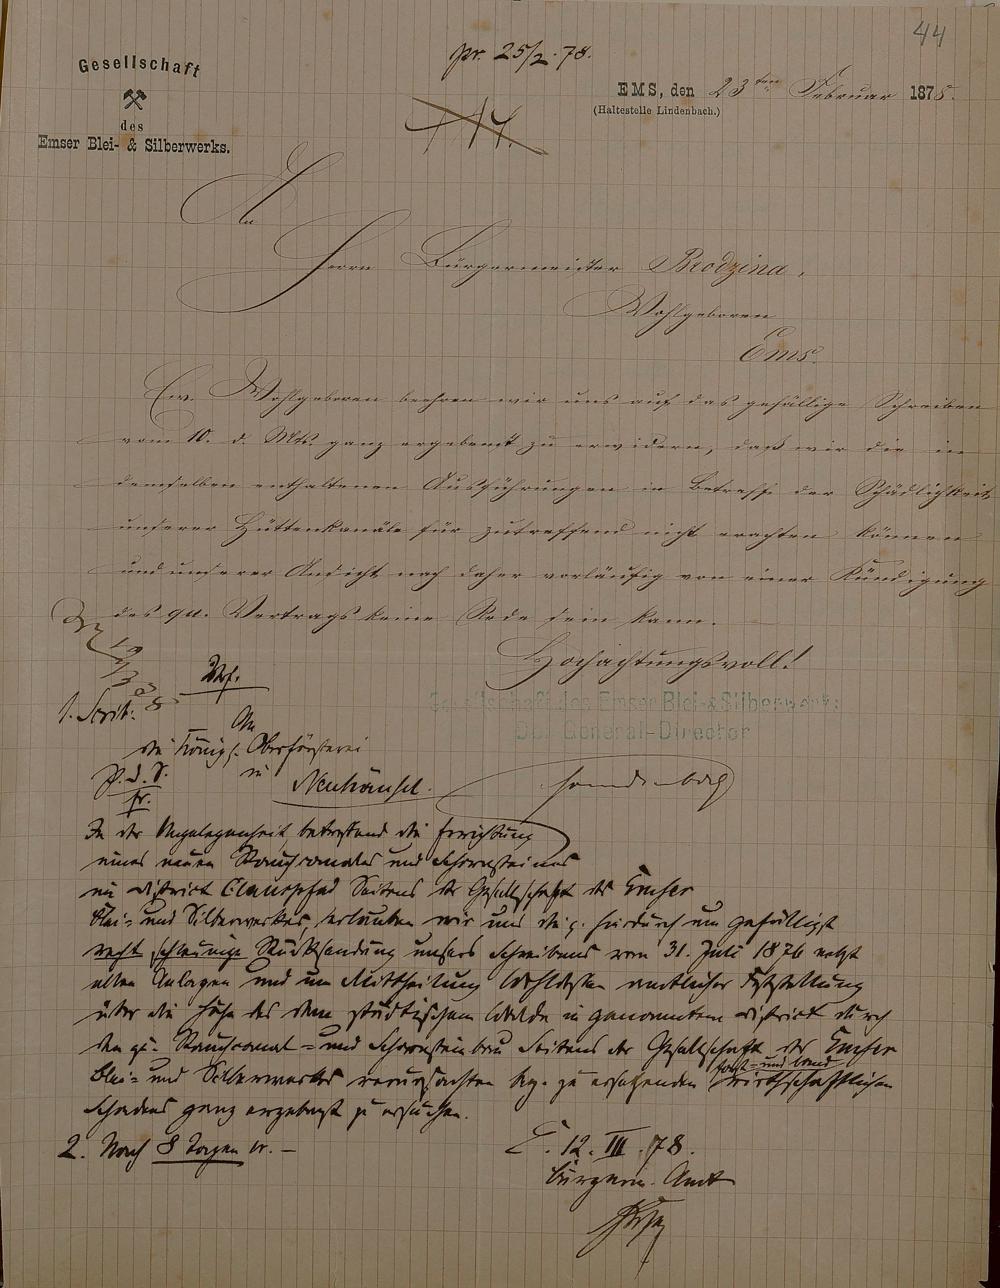 44
pr. 25/2.78.
Gesellschaft
des
Emser Blei- & Silberwerks.
EMS, den 23ten Februar 1878.
(Haltestelle Lindenbach.)
414.
An
Herrn Bürgermeister Brodzina,
Wohlgeboren
Ems.
Ew. Wohlgeboren beehren wir uns auf das gefällige Schreiben
vom 10. d. Mts. ganz ergebenst zu erwidern, daß wir die in
demselben enthaltenen Ausführungen in Betreff der Schädlichkeit
unserer Hüttenkanäle für zutreffend nicht erachten können
und unserer Ansicht nach daher vorläufig von einer Kündigung
des qu. Vertrags keine Rede sein kann.
Hochachtungsvoll!
Gesellschaft des Emser Blei- & Silberwerks
Der General-Director
Vrf.
1. Scrib:
An
die Königl. Oberförsterei
in
Neuhäusel.
In der Angelegenheit betreffend die Errichtung
eines neuen Rauchcanales und Schornsteines
im District Clauspfad Seitens der Gesellschaft des Emser
Blei- und Silberwerkes, erlauben wir uns hierdurch um gefälligst
recht schleunige Rücksendung unseres Schreibens vom 31. Juli 1876 nebst
allen Anlagen und um Mittheilung amtlicher Feststellung
über die Höhe des dem städtischen Walde in genanntem District durch
den qu. Rauchcanal- und Schornsteinbau Seitens der Gesellschaft des Emser
Blei- und Silberwerkes verursachten bez. zu ersetzenden forst- und land
wirthschaftlichen
Schadens ganz ergebenst zu ersuchen.
2. Nach 8 Tagen
E. 12. III. 78.
Bürgerm. Amt